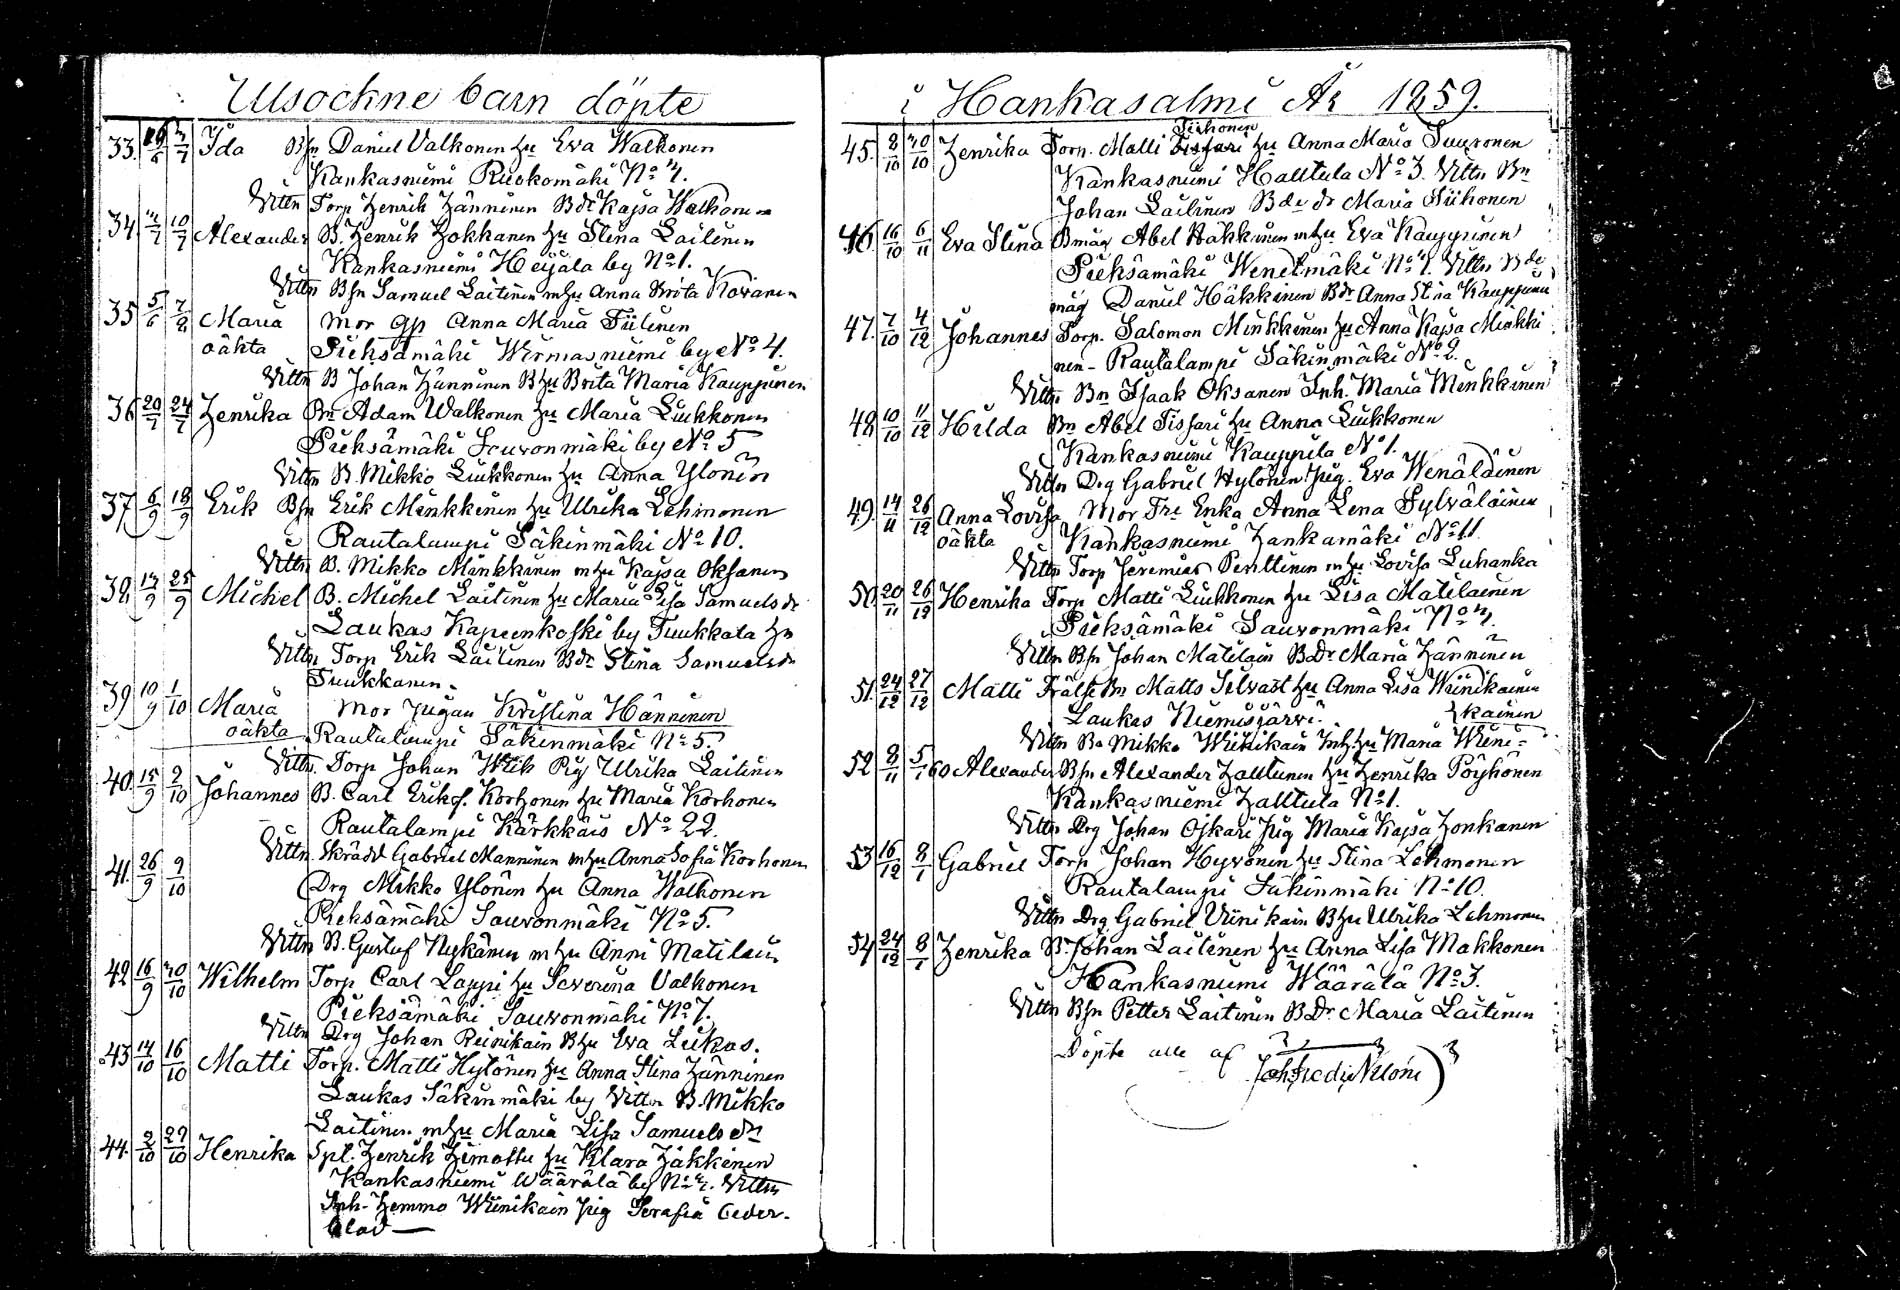 Utsockne barn döpte
33. 16/6 3/7 Ida Bsn Daniel Valkonen hu Eva Walkonen
Kankasniemi Ruokomäki No 4.
Vittn Torp Henrik Hänninen Bdr Kajsa Walkonen
34 4/7 10/7 Alexander B. Henrik Hokkanen hu Stina Laitinen
Kankasniemi Heijala by No 1.
Vittn Bsn Samuel Laitinen m hu Anna Brita Kovanen
35 5/6 7/8 Maria Mor Qp Anna Maria Tiilinen
oäkta Pieksämäki Wirmasniemi by No 4.
Vittn B Johan Hänninen B hu Brita Maria Kauppinen
36 20/7 24/7 Henrika Bn Adam Walkonen hu Maria Liukkonen
Pieksämäki Souvonmäki by No 5
Vittn B. Mikko Liukkonen hu Anna Ylönen
37 6/9 18/9 Erik Bsn Erik Minkkinen hu Ulrika Lehmonen
Rautalampi Säkinmäki No 10.
Vittn B. Mikko Minkkinen m hu Kajsa Oksanen
38 14/9 25/9 Michel B. Michel Laitinen hu Maria Lisa Samuelsdr
Laukas Kapeenkoski by Tuukkala hu
Vittn Torp Erik Laitinen Bdr Stina Samuelsdr
Tuukkanen.
39 10/9 1/10 Maria Mor Pigan Kristina Hänninen
oäkta Rautalampi Säkinmäki No 5.
Vittn. Torp Johan Wilk Pig Ulrika Laitinen
40. 15/9 2/10 Johannes B. Carl Eriksf. Korhonen hu Maria Korhonen
Rautalampi Kärkkäis No 22.
Vittn. Skrädd Gabriel Manninen m hu Anna Sofia Korhonen
41. 26/9 9/10 Drg Mikko Ylönen hu Anna Walkonen
Pieksämäki Souvonmäki No 5.
Vittn B. Gustaf Nykänen m hu Anni Matilain
42 16/9 30/10 Wilhelm Torp Carl Lappi hu Severina Valkonen
Pieksämäki Souvonmäki No 7.
Vittn Drg Johan Reinikain B hu Eva Liikas.
43 14/10 16/10 Matti Torp. Matti Hytönen hu Anna Stina Hänninen
Laukas Säkinmäki by Vittn B. Mikko
Laitinen m hu Maria Lisa Samuelsdr
44. 2/10 29/10 Henrika Spl. Henrik Himottu hu Klara Häkkinen
Kankasniemi Wäärälä by No 4. Vittn
Inh. Hemmo Wiinikain Pig Serafia Ceder-
blad —
i Hankasalmi År 1859.
Tiihonen
45. 8/10 30/10 Henrika Torp. Matti Tissari hu Anna Maria Suuronen
Kankasniemi Halttula No 3. Vittn Bn
Johan Laitinen Bde dr Maria Tiihonen
46. 16/10 6/11 Eva Stina Bmåg Abel Häkkinen m hu Eva Kauppinen
Pieksämäki Wenetmäki No 4. Vittn Bde
måg Daniel Häkkinen Bdr Anna Stina Kauppinen
47. 7/10 4/12 Johannes Torp. Salomon Minkkinen hu Anna Kajsa Minkki
nen - Rautalampi Säkinmäki No 2.
Vittn Bn Isaak Oksanen Inh. Maria Minkkinen
48 10/10 11/12 Hilda Bn Abel Tissari hu Anna Liukkonen
Kankasniemi Kauppila No 1.
Vittn Drg Gabriel Hytönen Pig. Eva Wenäläinen
49. 14/11 26/12 Anna Lovisa Mor Fre Enka Anna Lena Sylväläinen
oäkta Kankasniemi Hankamäki No 11.
Vittn Torp Jeremias Penttinen m hu Lovisa Luhanka
50. 20/11 26/12 Henrika Torp Matti Liukkonen hu Lisa Matilainen
Pieksämäki Souvonmäki No 4.
Vittn Bsn Johan Matilain BDr Maria Hänninen
51. 24/12 27/12 Matti Frälse Bn Matts Silvast hu Anna Lisa Wiinikainen
Laukas Niemisjärvi.
Vittn Bn Mikko Wiinikain Inh. hu Maria Wiini=
kainen
52 8/11 5/1 60 Alexander Bsn Alexander Halttunen hu Henrika Pöyhönen
Kankasniemi Halttula No 1.
Vittn Drg Johan Ojkari Pig Maria Kajsa Honkanen
53 16/12 8/1 Gabriel Torp Johan Hyvönen hu Stina Lehmonen
Rautalampi Säkinmäki No 10.
Vittn Drg Gabriel Viinikain B hu Ulrika Lehmonen
54 24/12 8/1 Henrika B. Johan Laitinen hu Anna Lisa Makkonen
Hankasniemi Wäärälä No 3.
Vittn Bsn Petter Laitinen BDr Maria Laitinen
Döpte alle af